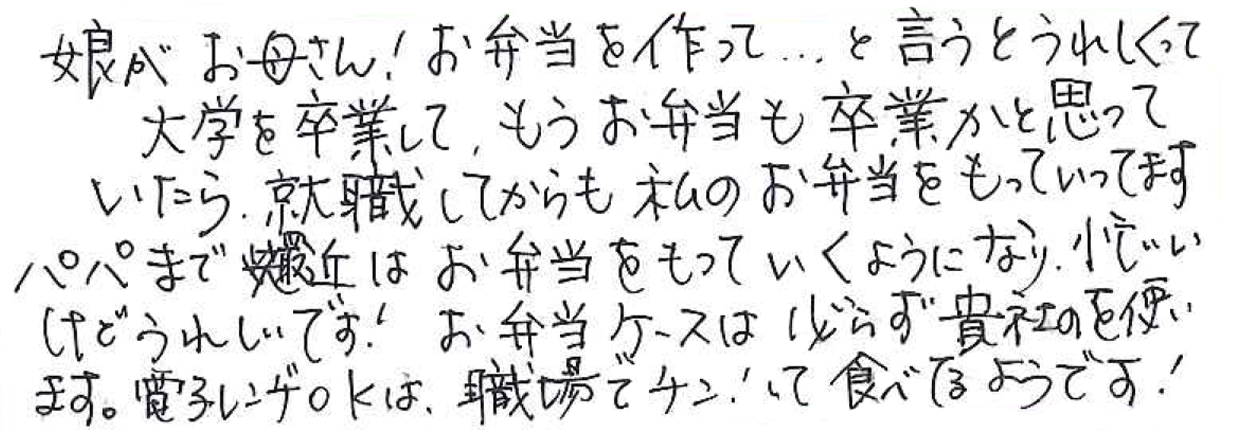 娘が お母さん！お弁当を作って…と言うとうれしくって
大学を卒業して、もうお弁当も卒業かと思って
いたら、就職してからも私のお弁当をもっていってます
パパまで最近はお弁当をもっていくようになり、忙しい
けどうれしいです！ お弁当ケースは必らず貴社のを使い
ます。電子レンヂOKは、職場でチン！して食べてるようです！